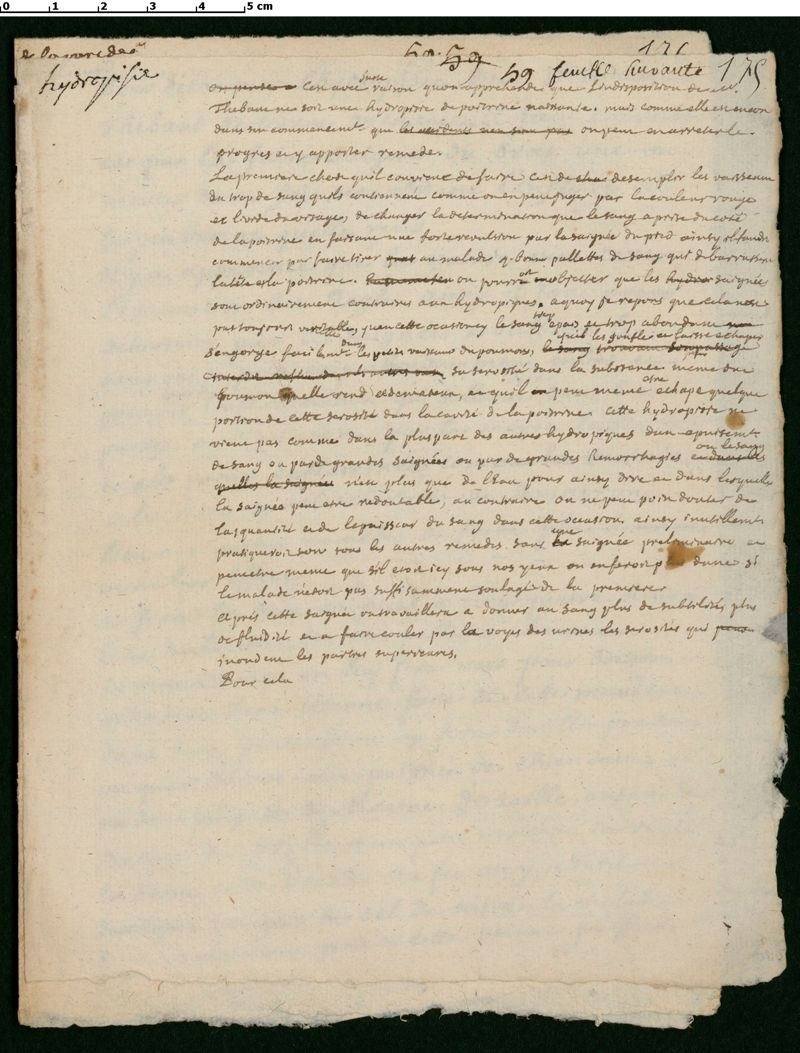 0 1 2 3 4 5 cm
59
hydropisie 59 feuille suivante 175
on pense a Cest avec juste raison quon apprehende que Lindisposition de M.
Thebau ne soit une hydropisie de poitrine naissante. mais comme elle est encor
dans son commencemt. que les accidents nen sont pas on peut en arreter le
progres et y apporter remede.
La premiere chose quil convient de faire cest de desemplir les vaisseaux
du trop de sang quils contiennent comme on en peut juger par la couleur rouge
et livide du visage, de changer la determination que le sang a prise du coté
de la poitrine en faisant une forte revulsion par la saignée du pied ainsy il faudra
commencer par faire tirer au malade 4 bonnes pallettes de sang qui debarrassera
la tête et la poitrine. on pourra objecter que les hydro saignées
sont ordinairement contraires aux hydropiques. a quoy je repons que cela nest
pas toujours veritable, quen cette occasion cy le sang trop epais et trop abondant
s'engorge facilemt. dans les petits vaisseaux du poumon, quil les gonfle et laisse echaper
sa serosité dans la substance même du
poumon quelle rend oedemateux, et quil peut meme echape quelque
portion de cette serosité dans la cavité de la poitrine. cette hydropisie ne
vient pas comme dans la plus part des autres hydropiques dun epuisemt.
de sang ou par de grandes saignées ou par de grandes hemorrhagies ou le sang
quelles la saignée n'est plus que de l'Eau pour ainsy dire et dans lesquels
la saignée peut etre redoutable, au contraire on ne peut point douter de
la quantité et de lepaisseur du sang dans cette occasion. ainsy inutillemt.
pratiqueroit on tous les autres remedes sans une saignée preliminaire et
peut etre meme que sil etoit icy sous nos yeux on en feroit plus dune si
le malade netoit pas suffisamment soulagé de la premiere
Après cette saignée on travaillera a donner au sang plus de subtilité, plus
de fluidité et a faire couler par la voye des urines les serosités qui
inondent les parties superieures.
Pour cela